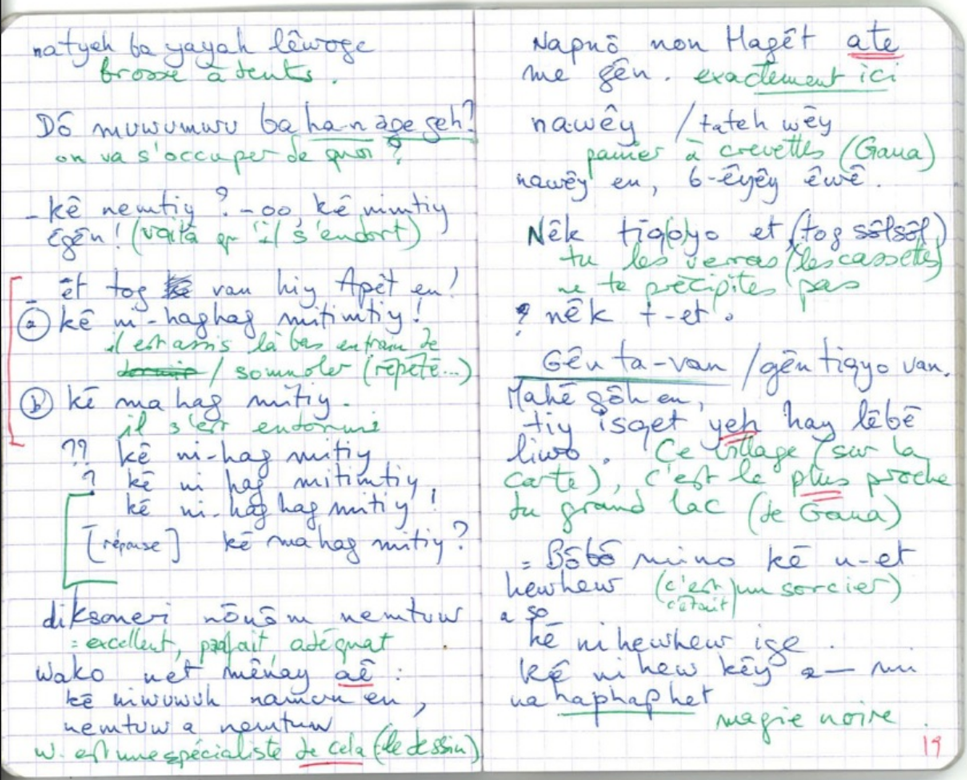 natyeh ba yayah lēwoge
brosse à dents.
Dō muwumwu ba ha-n age geh?
on va s'occuper de quoi ?
- kē nemtiy ? - oo, kē nimtiy
ēgēn ! (voilà qu'il s'endort)
ēt tog van hiy Apēt en!
(a) kē ni-haghag mitimtiy !
il est assis là bas en train de
dormir / somnoler (répété...)
(b) kē ma hag mitiy.
il s'est endormi
?? kē ni-hag mitiy
? kē ni hag mitimtiy
kē ni-hag hag mitiy !
[réponse] kē ma hag mitiy ?
diksoneri nōnōm nemtuw
= excellent, parfait, adéquat
Wako net mēnay aē :
kē niwuwuh namou en,
nemtuw a nemtuw
W. est une spécialiste de cela (le dessin)
Napnō non Magēt ate
me gēn. exactement ici
nawēy / tateh wēy
panier à crevettes (Gaua)
nawēy en, b-ēyēy ēwē.
Nēk tiq(o)yo et, (tog sōlsōl)
tu les verras (les cassettes)
ne te précipites pas
? nēk t-et.
Gēn ta-van / gēn tiqyo van.
Mahē gōh en,
tiy isqet yeh hay lēbē
liwo. Ce village (sur la
carte), c'est le plus proche
du grand lac (de Gaua)
= Bōbō mino kē n-et
hewhew (c'est / c'était) un sorcier)
a so
kē nihewhew ige.
kē ni hew kēy a — mi
na haphaphet
magie noire.
19